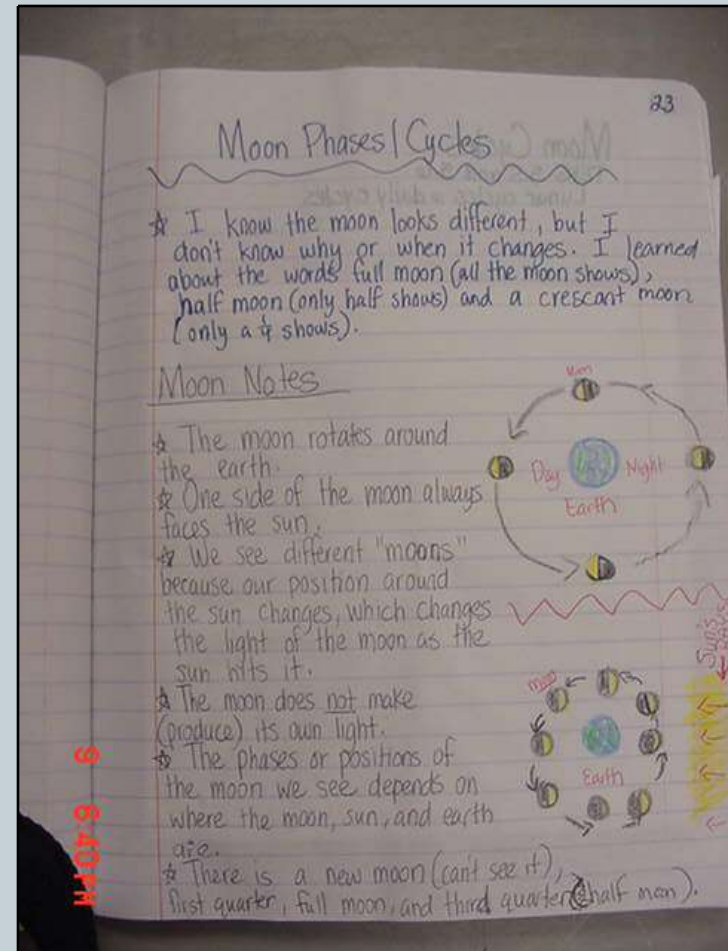 23
Moon Phases/Cycles
☆ I know the moon looks different, but I
don't know why or when it changes. I learned
about the words full moon (all the moon shows),
half moon (only half shows) and a crescant moon
(only a ¼ shows).
Moon Notes
☆ The moon rotates around
the earth.
☆ One side of the moon always
faces the sun.
☆ We see different "moons"
because our position around
the sun changes, which changes
the light of the moon as the
sun hits it.
☆ The moon does not make
(produce) its own light.
☆ The phases or positions of
the moon we see depends on
where the moon, sun, and earth
are.
☆ There is a new moon (can't see it),
first quarter, full moon, and third quarter (half moon).
Day
Night
Earth
Sun's
moon
Earth
9 6:40PM